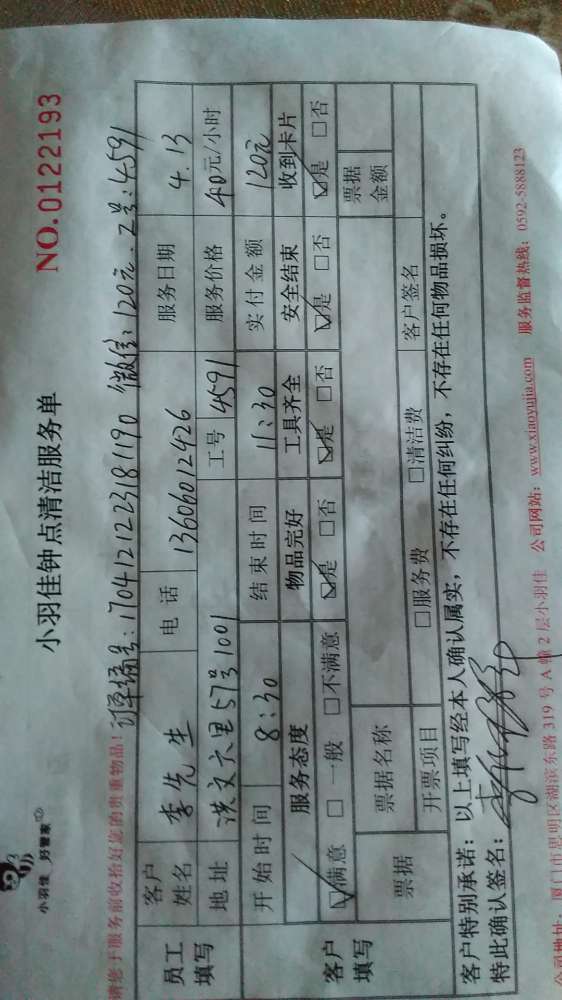 小羽佳 好管家
小羽佳钟点清洁服务单
NO.0122193
请您于服务前收拾好您的贵重物品！ 订单编号：170412122318 1190 微信：120元. 工号：4591
员工填写
客户姓名 李先生 电话 13606012426 服务日期 4.13
地址 洪文六里57号1001 工号 4591 服务价格 40元/小时
客户填写
开始时间 8:30 结束时间 11:30 实付金额 120元
服务态度 物品完好 工具齐全 安全结束 收到卡片
☑满意 □一般 □不满意 ☑是 □否 ☑是 □否 ☑是 □否 ☑是 □否
票据 票据名称 票据金额
开票项目 □服务费 □清洁费 客户签名
客户特别承诺：以上填写经本人确认属实，不存在任何纠纷，不存在任何物品损坏。
特此确认签名：
公司地址：厦门市思明区湖滨东路 319 号 A 幢 2 层小羽佳 公司网站：www.xiaoyujia.com 服务监督热线：0592-5888123